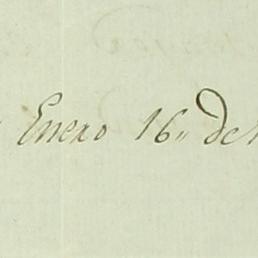 Enero 16,, de